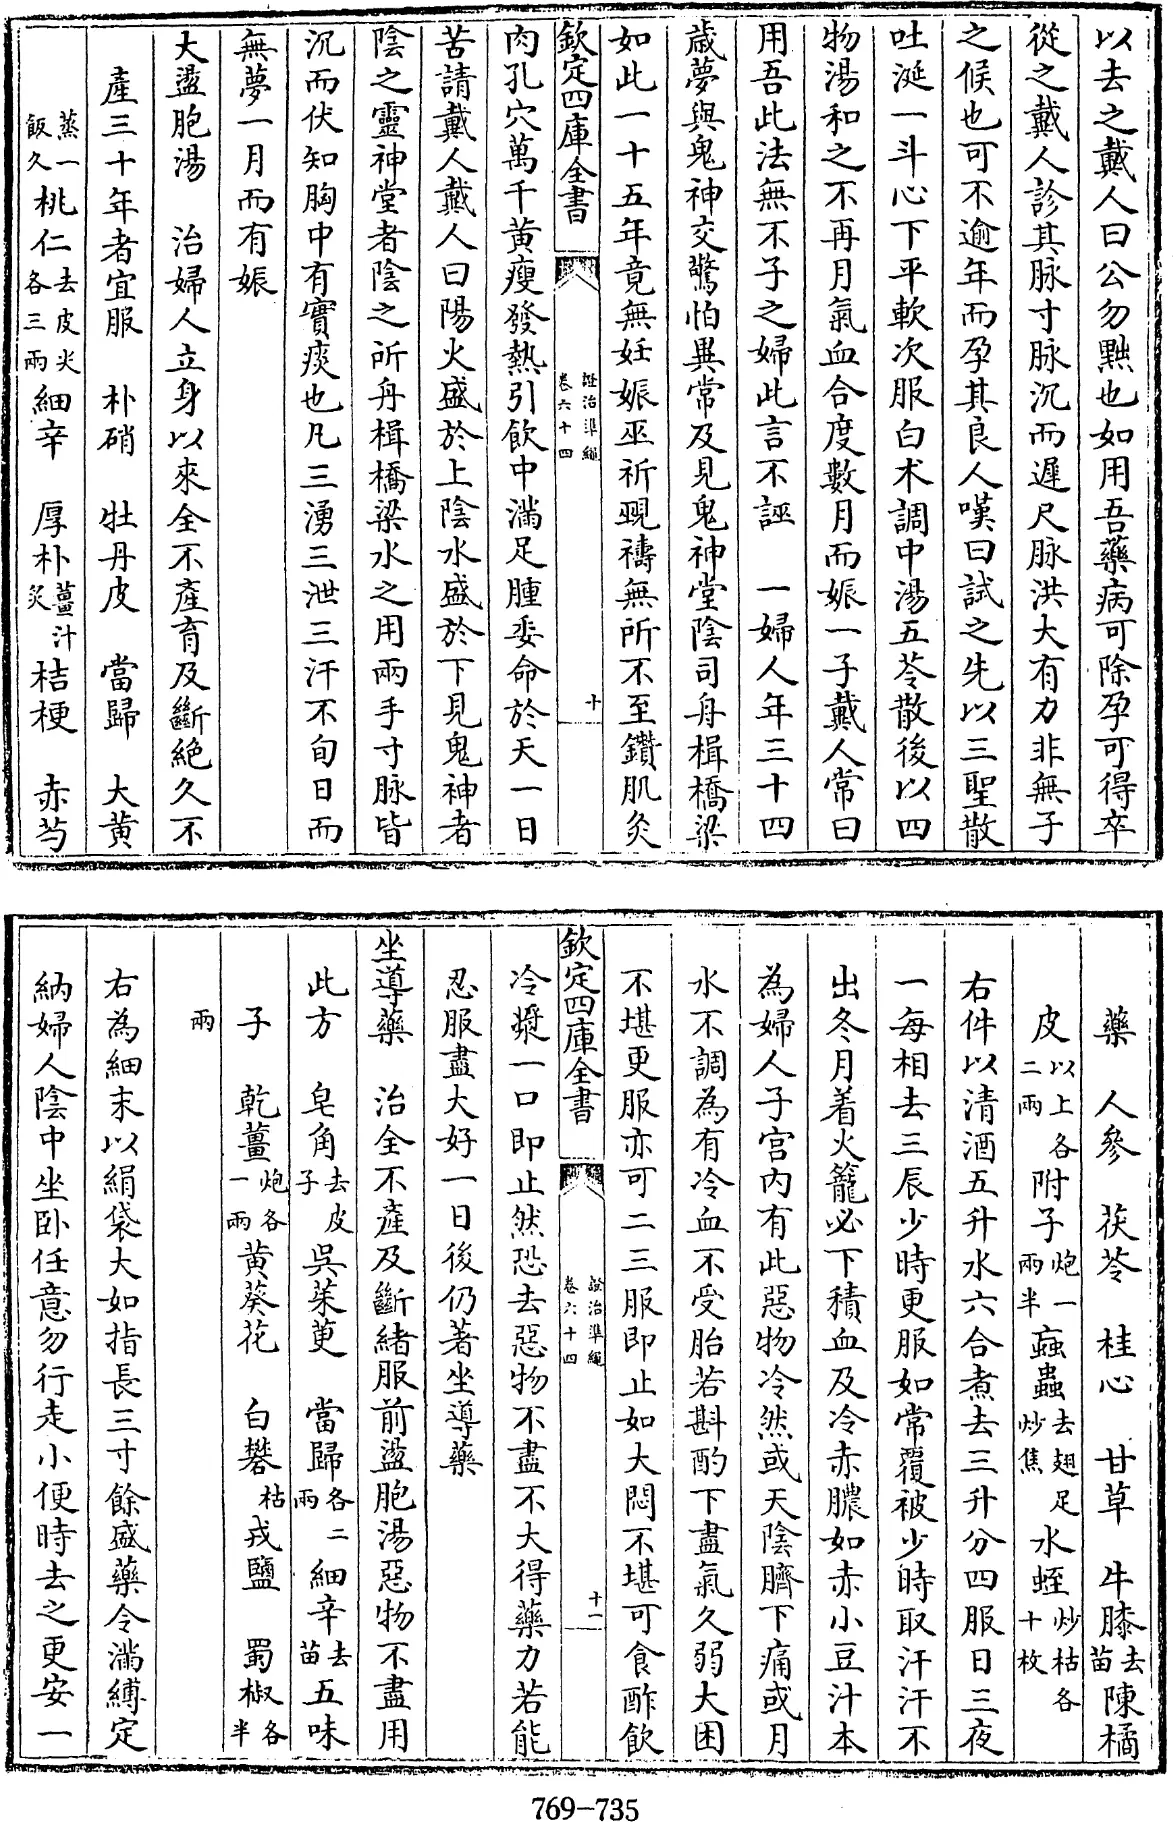 以去之戴人曰公勿黙也如用吾藥病可除孕可得卒
從之戴人診其脉寸脉沉而遲尺脉洪大有力非無子
之候也可不逾年而孕其良人嘆曰試之先以三聖散
吐涎一斗心下平軟次服白术調中湯五苓散後以四
物湯和之不再月氣血合度數月而娠一子戴人常曰
用吾此法無不子之婦此言不誣　一婦人年三十四
歳夢與鬼神交驚怕異常及見鬼神堂陰司舟楫橋梁
如此一十五年竟無妊娠巫祈覡禱無所不至鑽肌灸
欽定四庫全書
證治準繩
卷六十四
十
肉孔穴萬千黄瘦發熱引飲中滿足腫委命於天一日
苦請戴人戴人曰陽火盛於上陰水盛於下見鬼神者
陰之靈神堂者陰之所舟楫橋梁水之用兩手寸脉皆
沉而伏知胸中有實痰也凡三湧三泄三汗不旬日而
無夢一月而有娠
大盪胞湯　治婦人立身以來全不產育及斷絶久不
產三十年者宜服　朴硝　牡丹皮　當歸　大黄
蒸一飯久桃仁去皮尖各三兩細辛　厚朴薑汁炙桔梗　赤芍
藥　人參　茯苓　桂心　甘草　牛膝去苗陳橘
皮以上各二兩附子炮一兩半䗈蟲去翅足炒焦水蛭炒枯各十枚
右件以清酒五升水六合煮去三升分四服日三夜
一每相去三辰少時更服如常覆被少時取汗汗不
出冬月着火籠必下積血及冷赤膿如赤小豆汁本
為婦人子宫内有此惡物冷然或天陰臍下痛或月
水不調為有冷血不受胎若斟酌下盡氣久弱大困
不堪更服亦可二三服即止如大悶不堪可食酢飲
欽定四庫全書
證治準繩
卷六十四
十一
冷漿一口即止然恐去惡物不盡不大得藥力若能
忍服盡大好一日後仍著坐導藥
坐導藥　治全不產及斷緒服前盪胞湯惡物不盡用
此方　皂角去皮子　吳茱萸　當歸各二兩細辛去苗五味
子　乾薑炮各一兩黄葵花　白礬枯戎鹽　蜀椒各半
兩
右為細末以絹袋大如指長三寸餘盛藥令滿縳定
納婦人陰中坐卧任意勿行走小便時去之更安一
769-735